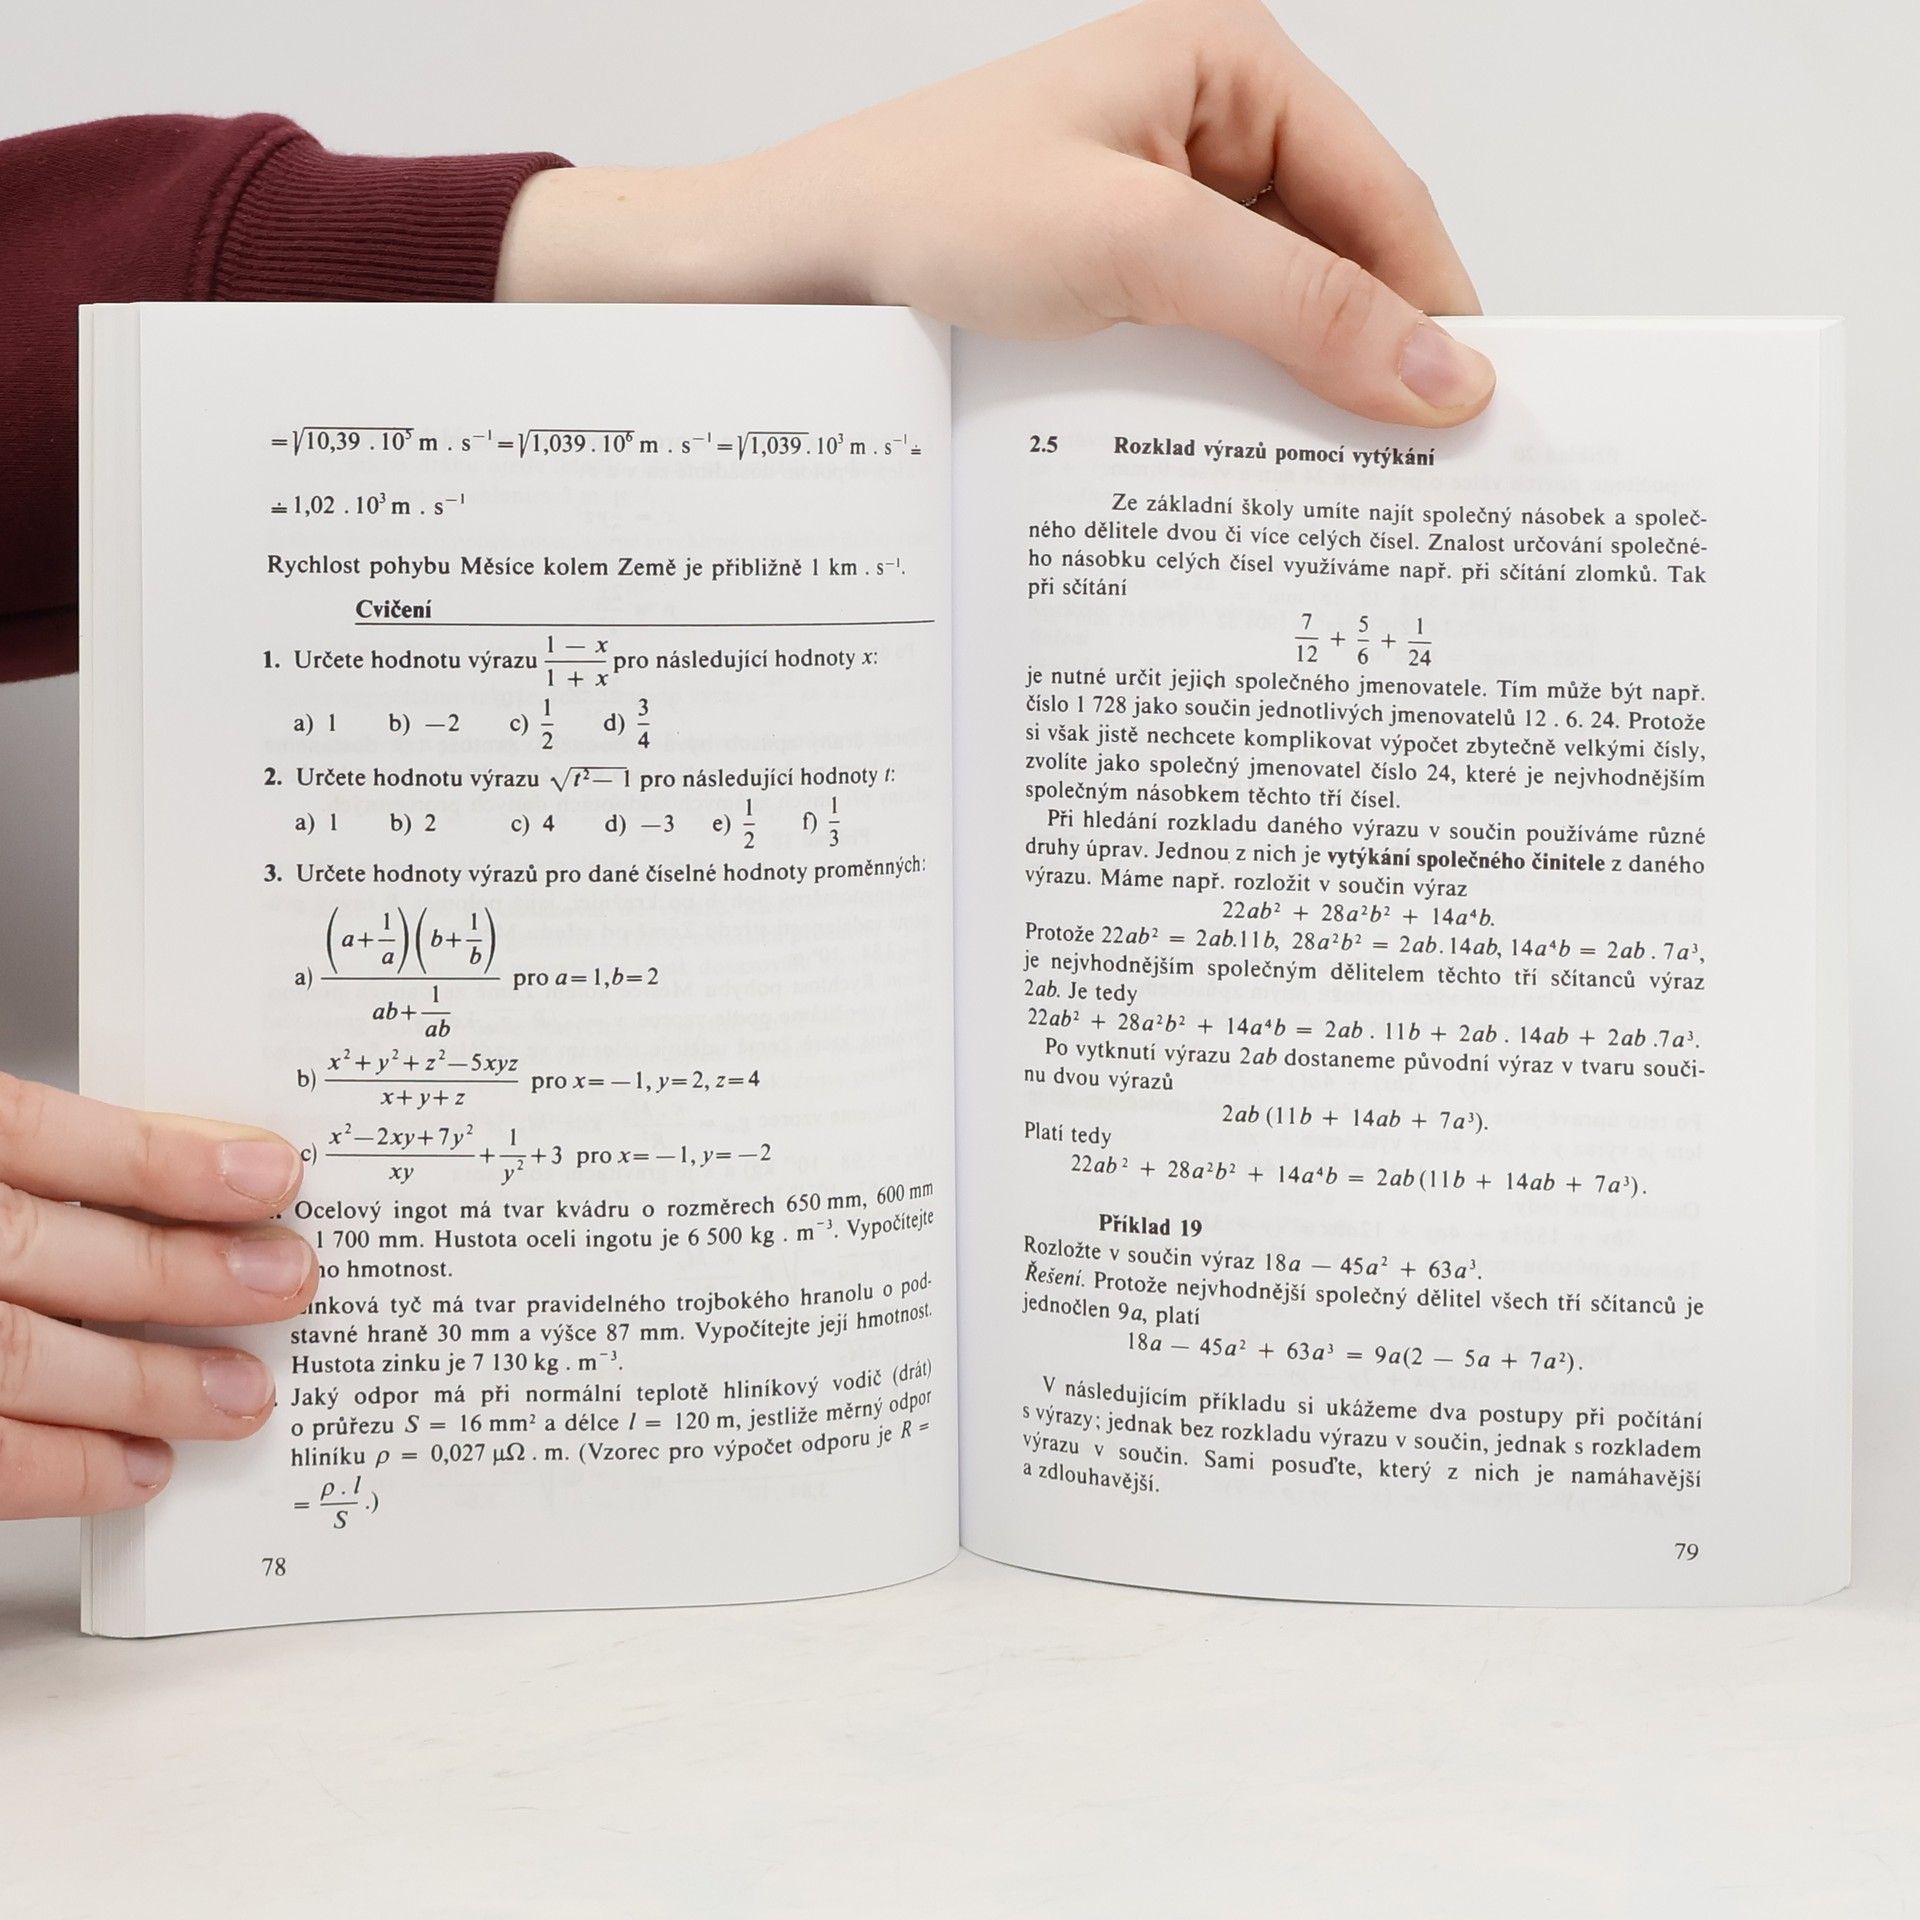 =√10,39 . 10⁵ m . s⁻¹=√1,039 . 10⁶ m . s⁻¹=√1,039 . 10³ m . s⁻¹≐
≐ 1,02 . 10³ m . s⁻¹
Rychlost pohybu Měsíce kolem Země je přibližně 1 km . s⁻¹.
Cvičení
1. Určete hodnotu výrazu (1 − x)/(1 + x) pro následující hodnoty x:
a) 1 b) −2 c) 1/2 d) 3/4
2. Určete hodnotu výrazu √t²− 1 pro následující hodnoty t:
a) 1 b) 2 c) 4 d) −3 e) 1/2 f) 1/3
3. Určete hodnoty výrazů pro dané číselné hodnoty proměnných:
a) ((a+1/a)(b+1/b))/(ab+1/ab) pro a=1,b=2
b) (x²+y²+z²−5xyz)/(x+y+z) pro x=−1, y=2, z=4
c) (x²−2xy+7y²)/xy + 1/y² +3 pro x=−1, y=−2
Ocelový ingot má tvar kvádru o rozměrech 650 mm, 600 mm
1 700 mm. Hustota oceli ingotu je 6 500 kg . m⁻³. Vypočítejte
hmotnost.
tyč má tvar pravidelného trojbokého hranolu o pod-
stavné hraně 30 mm a výšce 87 mm. Vypočítejte její hmotnost.
Hustota zinku je 7 130 kg . m⁻³.
Jaký odpor má při normální teplotě hliníkový vodič (drát)
o průřezu S = 16 mm² a délce l = 120 m, jestliže měrný odpor
hliníku ρ = 0,027 μΩ . m. (Vzorec pro výpočet odporu je R =
= (ρ . l)/S .)
78
2.5 Rozklad výrazů pomocí vytýkání
Ze základní školy umíte najít společný násobek a společ-
ného dělitele dvou či více celých čísel. Znalost určování společné-
ho násobku celých čísel využíváme např. při sčítání zlomků. Tak
při sčítání
7/12 + 5/6 + 1/24
je nutné určit jejich společného jmenovatele. Tím může být např.
číslo 1 728 jako součin jednotlivých jmenovatelů 12 . 6. 24. Protože
si však jistě nechcete komplikovat výpočet zbytečně velkými čísly,
zvolíte jako společný jmenovatel číslo 24, které je nejvhodnějším
společným násobkem těchto tří čísel.
Při hledání rozkladu daného výrazu v součin používáme různé
druhy úprav. Jednou z nich je vytýkání společného činitele z daného
výrazu. Máme např. rozložit v součin výraz
22ab² + 28a²b² + 14a⁴b.
Protože 22ab² = 2ab.11b, 28a²b² = 2ab. 14ab, 14a⁴b = 2ab . 7a³,
je nejvhodnějším společným dělitelem těchto tří sčítanců výraz
2ab. Je tedy
22ab² + 28a²b² + 14a⁴b = 2ab . 11b + 2ab . 14ab + 2ab .7a³.
Po vytknutí výrazu 2ab dostaneme původní výraz v tvaru souči-
nu dvou výrazů
2ab (11b + 14ab + 7a³).
Platí tedy
22ab² + 28a²b² + 14a⁴b = 2ab (11b + 14ab + 7a³).
Příklad 19
Rozložte v součin výraz 18a − 45a² + 63a³.
Řešení. Protože nejvhodnější společný dělitel všech tří sčítanců je
jednočlen 9a, platí
18a − 45a² + 63a³ = 9a(2 − 5a + 7a²).
V následujícím příkladu si ukážeme dva postupy při počítání
s výrazy; jednak bez rozkladu výrazu v součin, jednak s rozkladem
výrazu v součin. Sami posuďte, který z nich je namáhavější
a zdlouhavější.
79